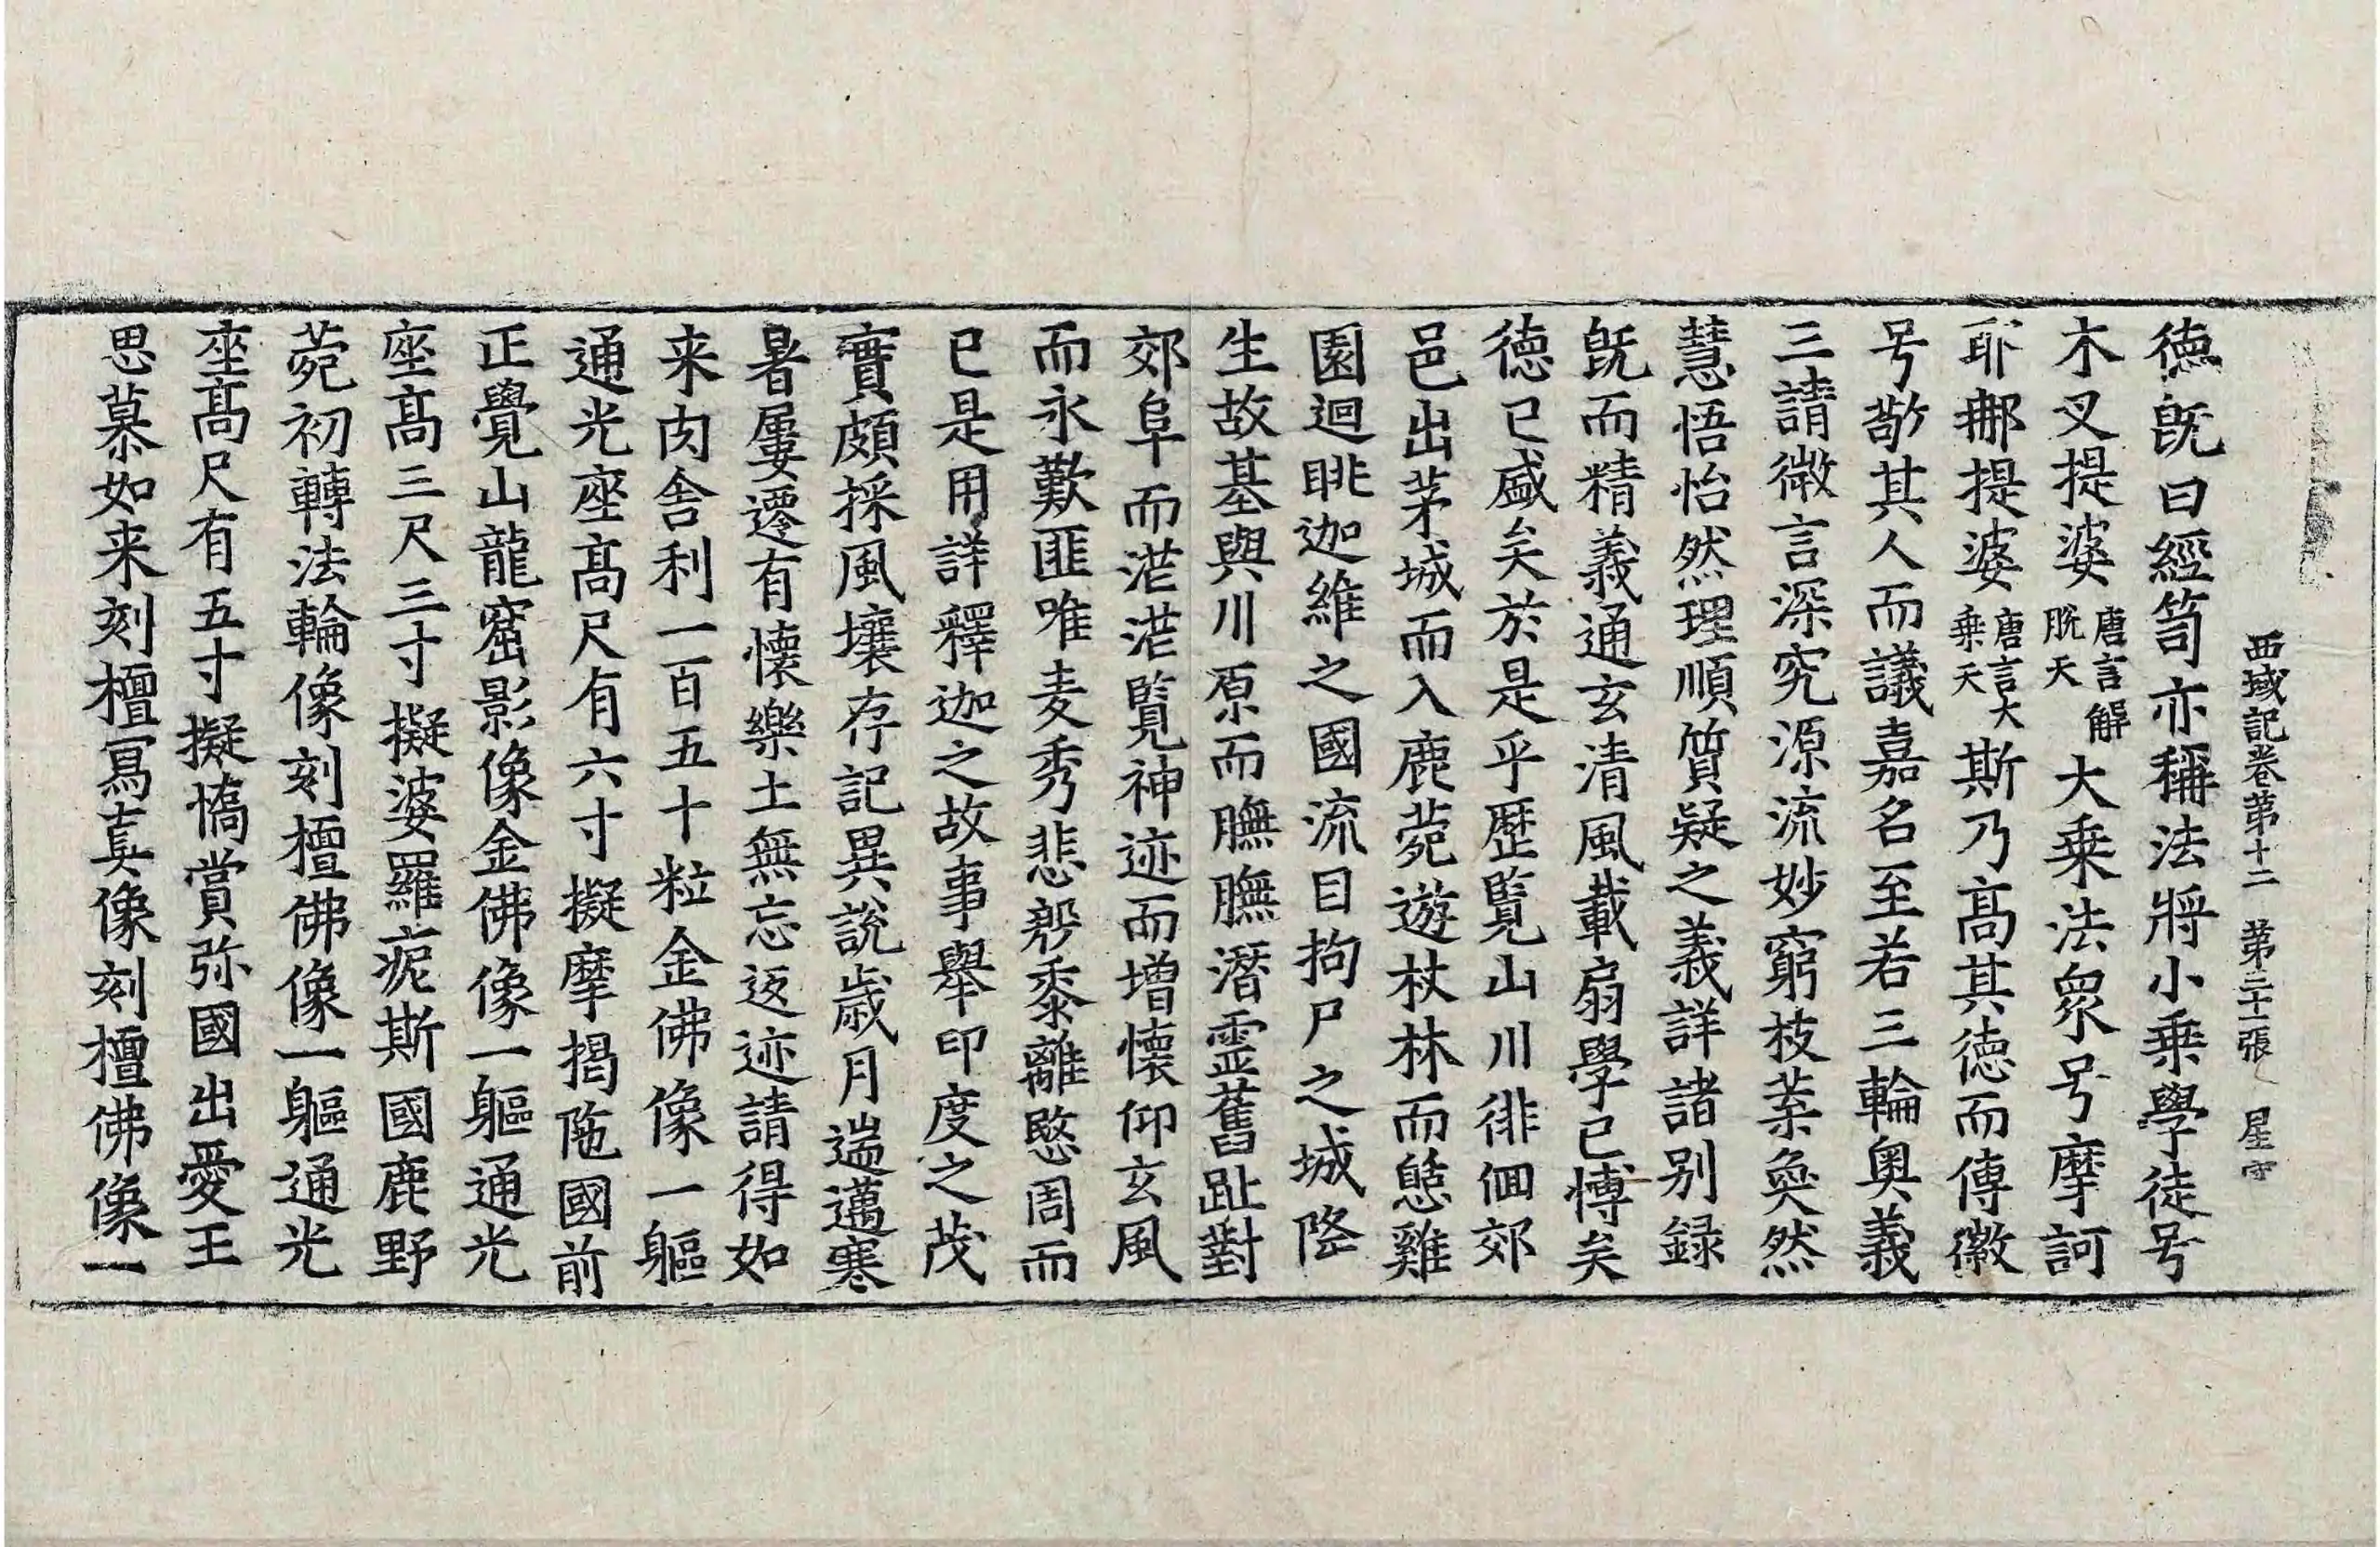 西域記卷第十二　第三十一張　星字
德旣曰經笥亦稱法將小乗學徒号
木叉提婆唐言解脫天大乗法衆号摩訶
耶那提婆唐言大乗天斯乃髙其德而傳徽
号敬其人而議嘉名至若三輪奧義
三請微言深究源流妙窮枝葉奐然
慧悟怡然理順質疑之義詳諸別録
旣而精義通玄清風載扇學已博矣
德已盛矣於是乎歷覧山川徘佪郊
邑出茅城而入鹿菀遊杖林而憇雞
園迴眺迦維之國流目拘尸之城降
生故基與川原而膴膴潛靈舊趾對
郊阜而茫茫覧神迹而增懷仰玄風
而永歎匪唯麦秀悲殷黍離愍周而
已是用詳釋迦之故事舉印度之茂
實頗採風壤存記異說歳月遄邁寒
暑屢遷有懷樂土無忘返迹請得如
来肉舍利一百五十粒金佛像一軀
通光座髙尺有六寸擬摩揭陁國前
正覺山龍窟影像金佛像一軀通光
座髙三尺三寸擬婆羅痆斯國鹿野
菀初轉法輪像刻檀佛像一軀通光
座髙尺有五寸擬憍賞弥國出愛王
思慕如来刻檀冩真像刻檀佛像一